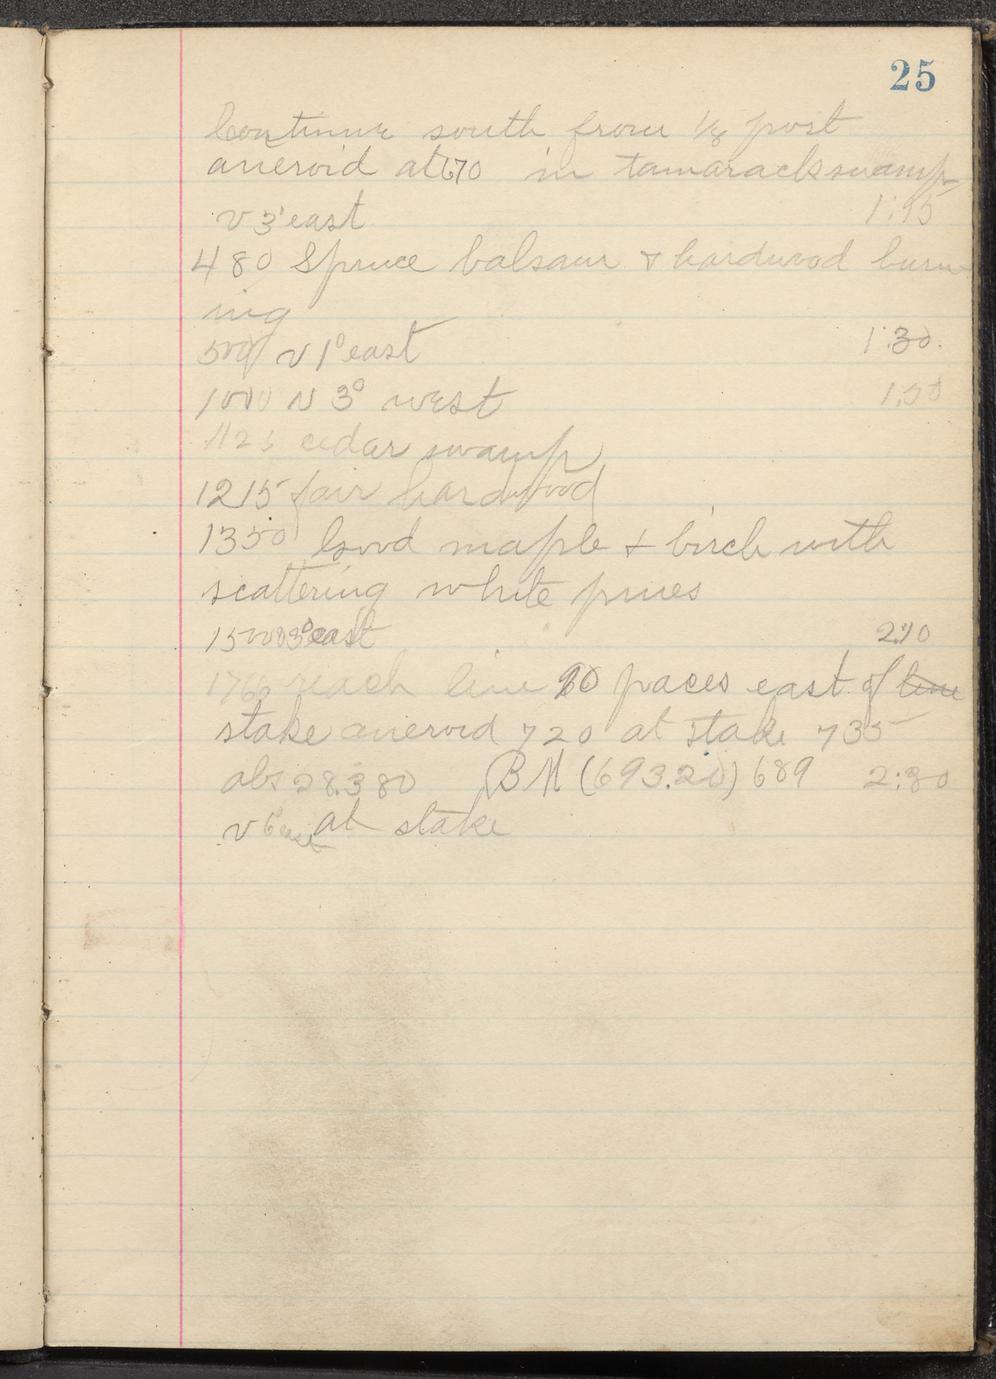 25
Continue south from 1/8 post
aneroid at 670 in tamarack swamp
v 3° east 1:15
480 Spruce balsam & hardwood burn
ing
500 v 1° east 1:30.
1000 v 3° west 1:50
1125 cedar swamp
1215 fair hardwood
1350 Good maple + birch with
scattering white pines
1500 v 3° east 2:10
1766 reach line 10 paces east of line
stake aneroid 720 at stake 735
abs 28.380 BM (693.20) 689 2:30
v 6° east at stake